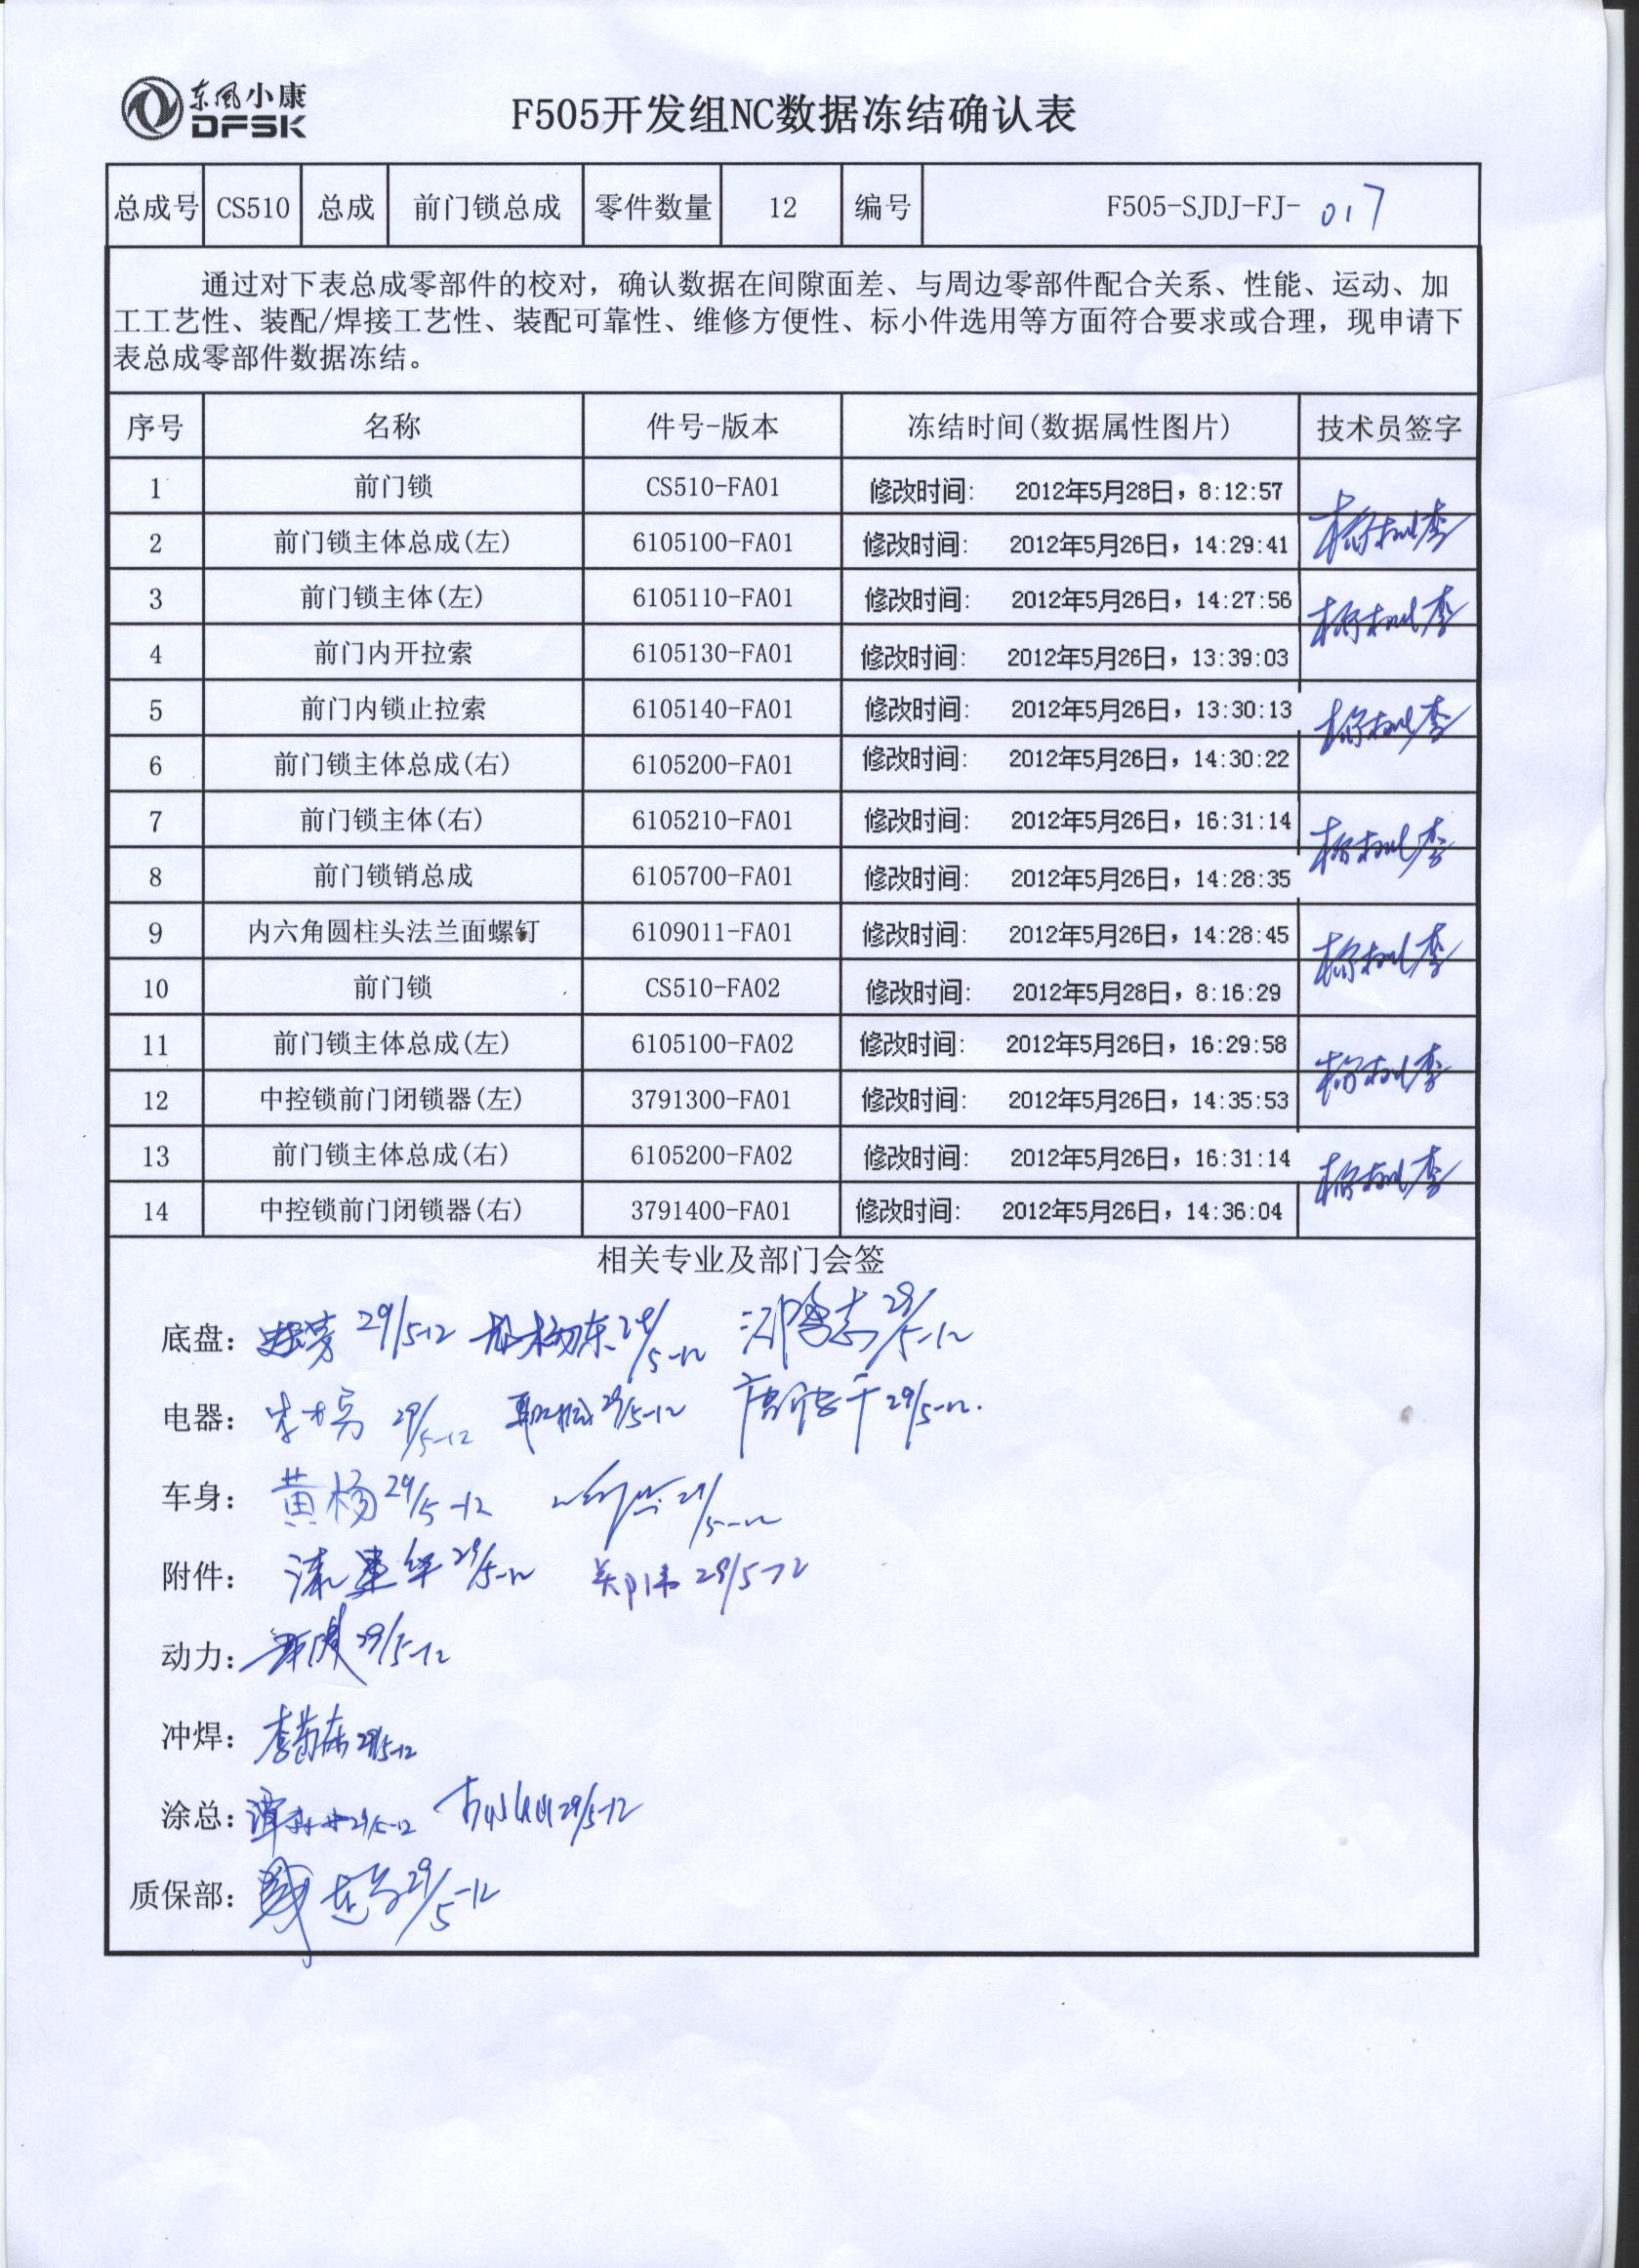 东风小康
DFSK
F505开发组NC数据冻结确认表
总成号 CS510 总成 前门锁总成 零件数量 12 编号 F505-SJDJ-FJ-017
通过对下表总成零部件的校对，确认数据在间隙面差、与周边零部件配合关系、性能、运动、加
工工艺性、装配/焊接工艺性、装配可靠性、维修方便性、标小件选用等方面符合要求或合理，现申请下
表总成零部件数据冻结。
序号 名称 件号-版本 冻结时间(数据属性图片) 技术员签字
1 前门锁 CS510-FA01 修改时间： 2012年5月28日，8:12:57
2 前门锁主体总成(左) 6105100-FA01 修改时间： 2012年5月26日，14:29:41
3 前门锁主体(左) 6105110-FA01 修改时间： 2012年5月26日，14:27:56
4 前门内开拉索 6105130-FA01 修改时间： 2012年5月26日，13:39:03
5 前门内锁止拉索 6105140-FA01 修改时间： 2012年5月26日，13:30:13
6 前门锁主体总成(右) 6105200-FA01 修改时间： 2012年5月26日，14:30:22
7 前门锁主体(右) 6105210-FA01 修改时间： 2012年5月26日，16:31:14
8 前门锁销总成 6105700-FA01 修改时间： 2012年5月26日，14:28:35
9 内六角圆柱头法兰面螺钉 6109011-FA01 修改时间： 2012年5月26日，14:28:45
10 前门锁 CS510-FA02 修改时间： 2012年5月28日，8:16:29
11 前门锁主体总成(左) 6105100-FA02 修改时间： 2012年5月26日，16:29:58
12 中控锁前门闭锁器(左) 3791300-FA01 修改时间： 2012年5月26日，14:35:53
13 前门锁主体总成(右) 6105200-FA02 修改时间： 2012年5月26日，16:31:14
14 中控锁前门闭锁器(右) 3791400-FA01 修改时间： 2012年5月26日，14:36:04
相关专业及部门会签
底盘： 29/5-12 29/5-12 29/5-12
电器： 29/5-12 29/5-12 29/5-12.
车身： 黄杨 29/5-12 29/5-12
附件： 29/5-12 郑伟 29/5-12
动力： 29/5-12
冲焊： 29/5-12
涂总： 29/5-12 29/5-12
质保部： 29/5-12